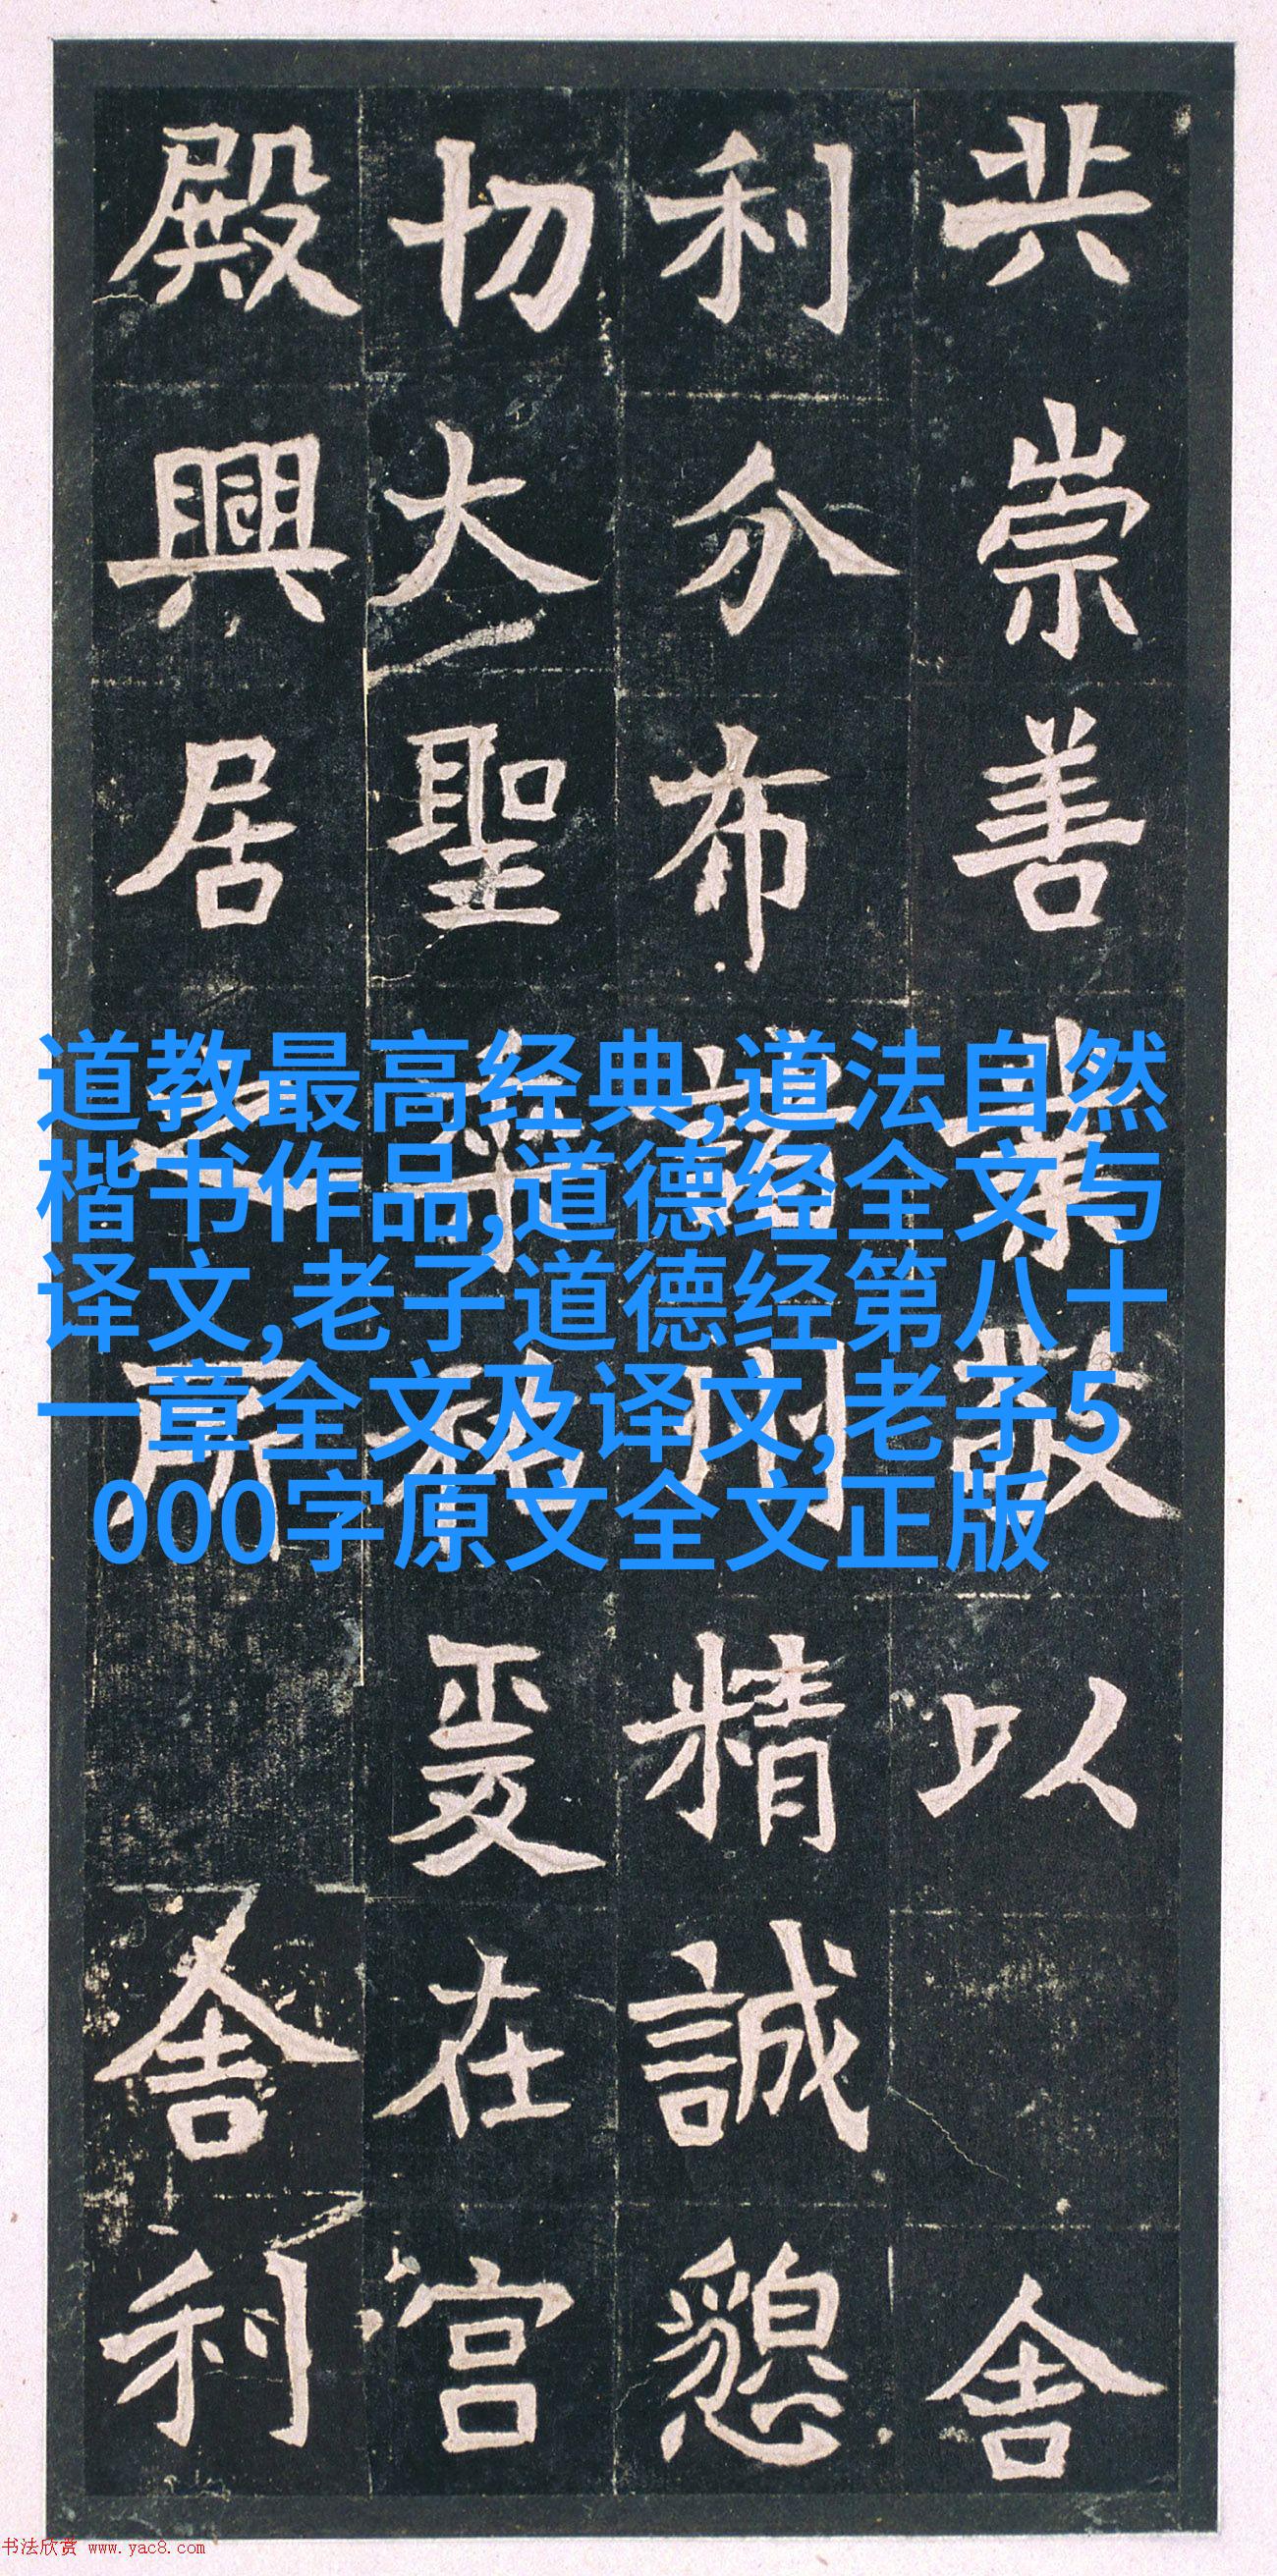 共崇善業敬以舍
利分布諸州精誠懇
切大聖爰在宮
殿興居之所舍利
道教最高经典,道法自然
楷书作品,道德经全文与
译文,老子道德经第八十
一章全文及译文,老子5
000字原文全文正版
书法欣赏 www.yac8.com